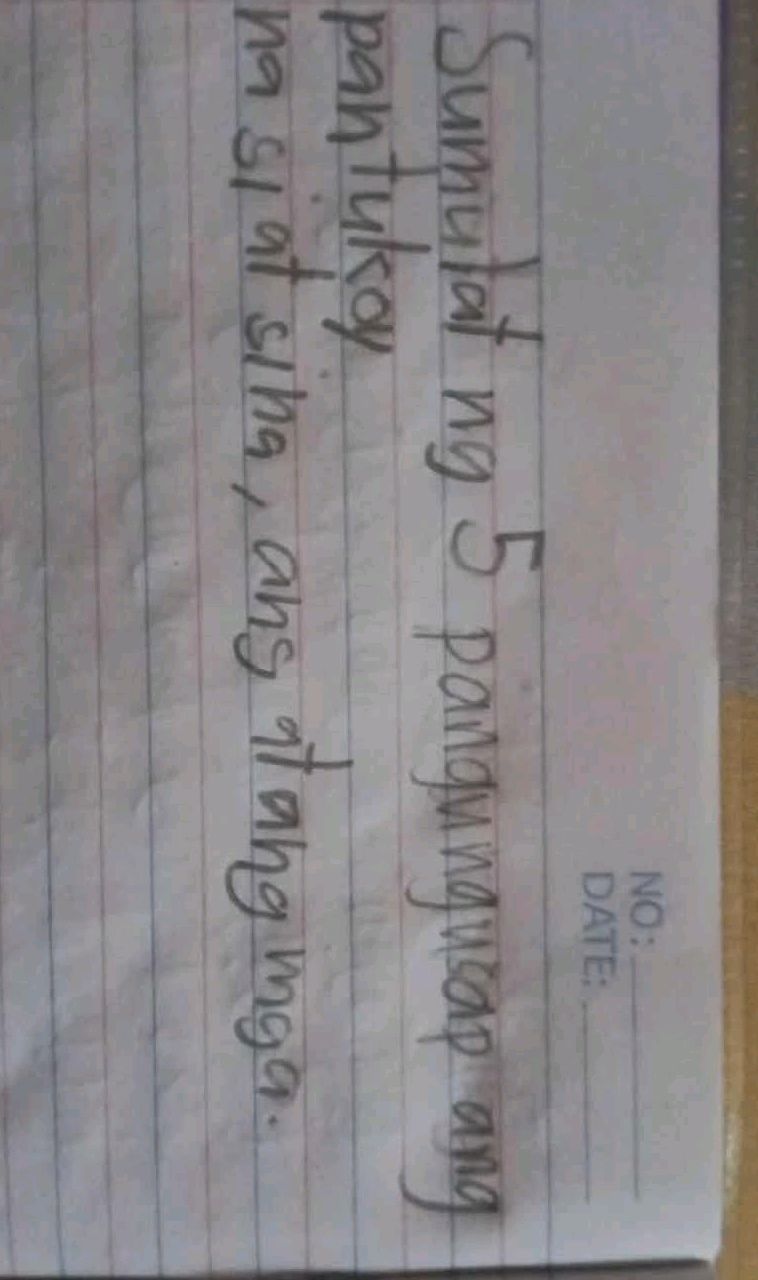 NO:
DATE:
Sumulat ng 5 pangungusap ang
pantukoy
na si at sina, ang at ang mga.